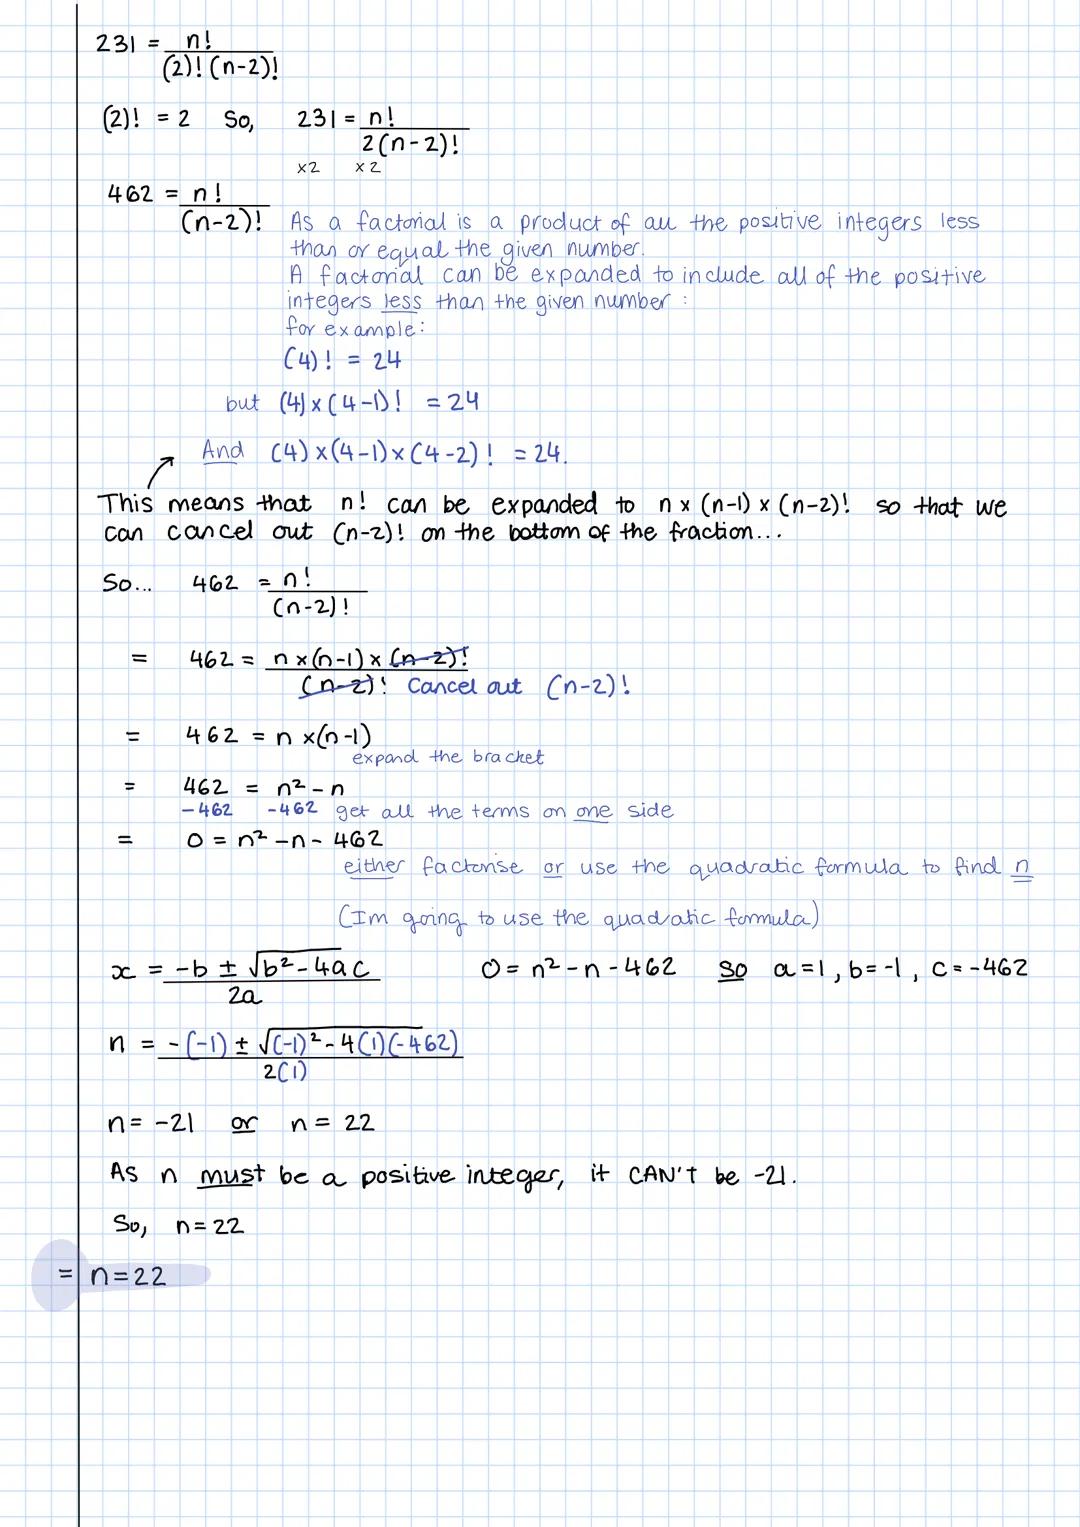 231 = n!
(2)! (n-2)!
(2)! = 2 So, 231 = n!
2(n-2)!
x2 x2
462 = n!
(n-2)! As a factorial is a product of all the positive integers less
than or equal the given number.
A factorial can be expanded to include all of the positive
integers less than the given number :
for example:
(4)! = 24
but (4)x(4-1)! = 24
And (4)x(4-1)x(4-2)! = 24.
This means that n! can be expanded to n x (n-1) x (n-2)! so that we
can cancel out (n-2)! on the bottom of the fraction...
So... 462 = n!
(n-2)!
= 462 = n x(n-1) x (n-2)!
(n-2)! Cancel out (n-2)!
= 462 = n x(n-1)
expand the bracket
= 462 = n² - n
-462 -462 get all the terms on one side
= 0 = n² -n - 462
either factorise or use the quadratic formula to find n
(Im going to use the quadratic formula)
x = -b ± √b² - 4ac 0 = n² - n - 462 so a = 1, b = -1, c = -462
2a
n = -(-1) ± √(-1)² - 4(1)(-462)
2(1)
n = -21 or n = 22
As n must be a positive integer, it CAN'T be -21.
So, n = 22
= n = 22